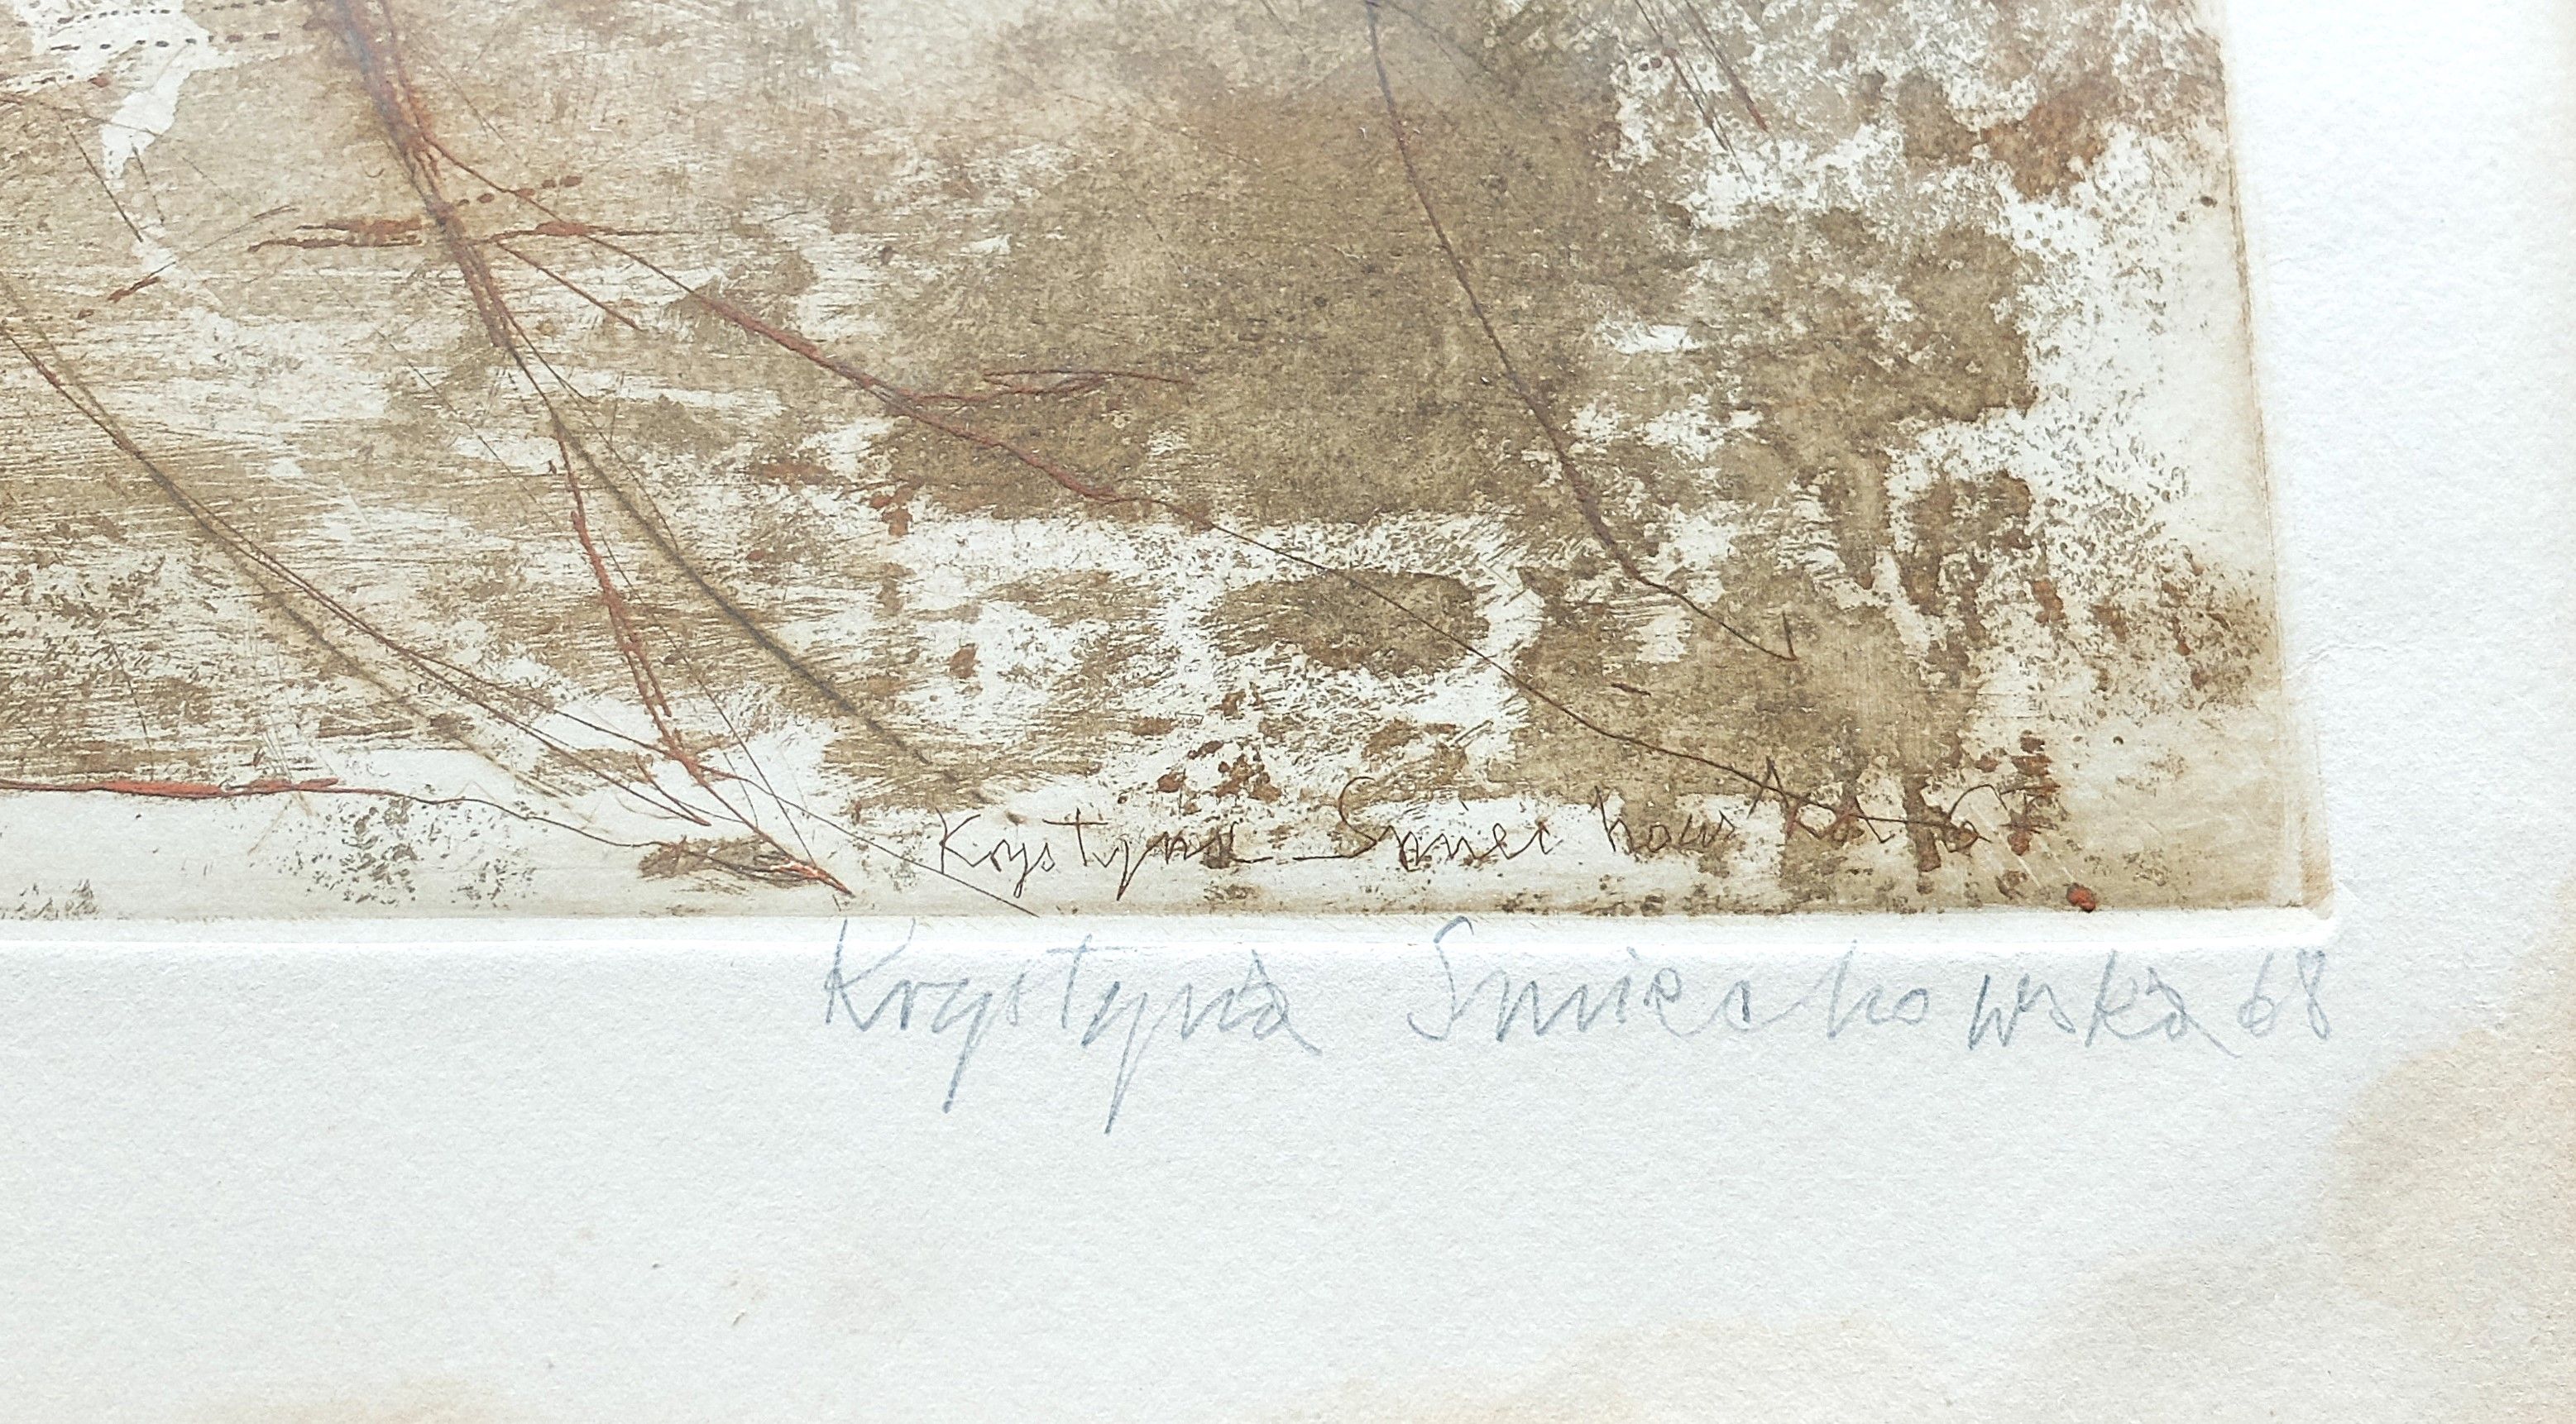 Krystyna Smiechowska 67
Krystyna Smiechowska 68